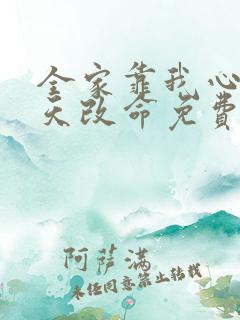 全家靠我心
天改命免费
阿萨满
未经同意禁止转载